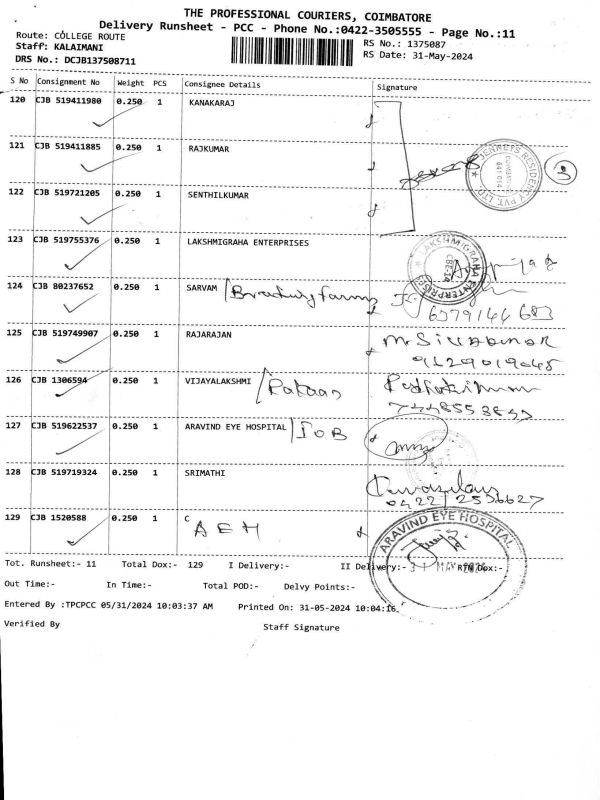 THE PROFESSIONAL COURIERS, COIMBATORE
Delivery Runsheet - PCC - Phone No.:0422-3505555 - Page No.:11
Route: COLLEGE ROUTE
RS No.: 1375087
Staff: KALAIMANI
RS Date: 31-May-2024
DRS No.: DCJB137508711
S No Consignment No Weight PCS Consignee Details Signature
120 CJB 519411980 0.250 1 KANAKARAJ
121 CJB 519411885 0.250 1 RAJKUMAR
JENNEYS RESIDENCY PVT. LTD. COIMBATORE 641 014
3
122 CJB 519721205 0.250 1 SENTHILKUMAR
123 CJB 519755376 0.250 1 LAKSHMIGRAHA ENTERPRISES
LAKSHMIGRAHA ENTERPRISES CBE-14
124 CJB 80237652 0.250 1 SARVAM
6379144683
125 CJB 519749907 0.250 1 RAJARAJAN
9629019045
126 CJB 1306594 0.250 1 VIJAYALAKSHMI
127 CJB 519622537 0.250 1 ARAVIND EYE HOSPITAL / IOB
128 CJB 519719324 0.250 1 SRIMATHI
0422 / 2536627
129 CJB 1520588 0.250 1 C AEH
ARAVIND EYE HOSPITAL
31 MAY 2024
Tot. Runsheet:- 11 Total Dox:- 129 I Delivery:- II Delivery:- RTN Dox:-
Out Time:- In Time:- Total POD:- Delvy Points:-
Entered By :TPCPCC 05/31/2024 10:03:37 AM Printed On: 31-05-2024 10:04:16
Verified By Staff Signature